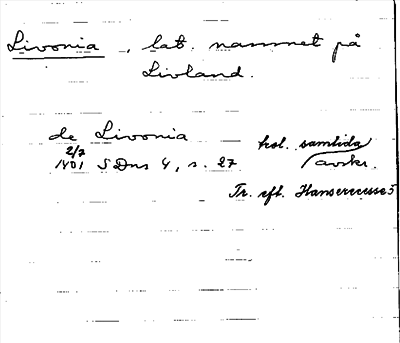 Livonia, lat. namnet på
Livland.
de Livonia hol. samtida
2/7
1401 SDns 4, s. 27 avskr.
Tr. eft. Hanserecesse 5